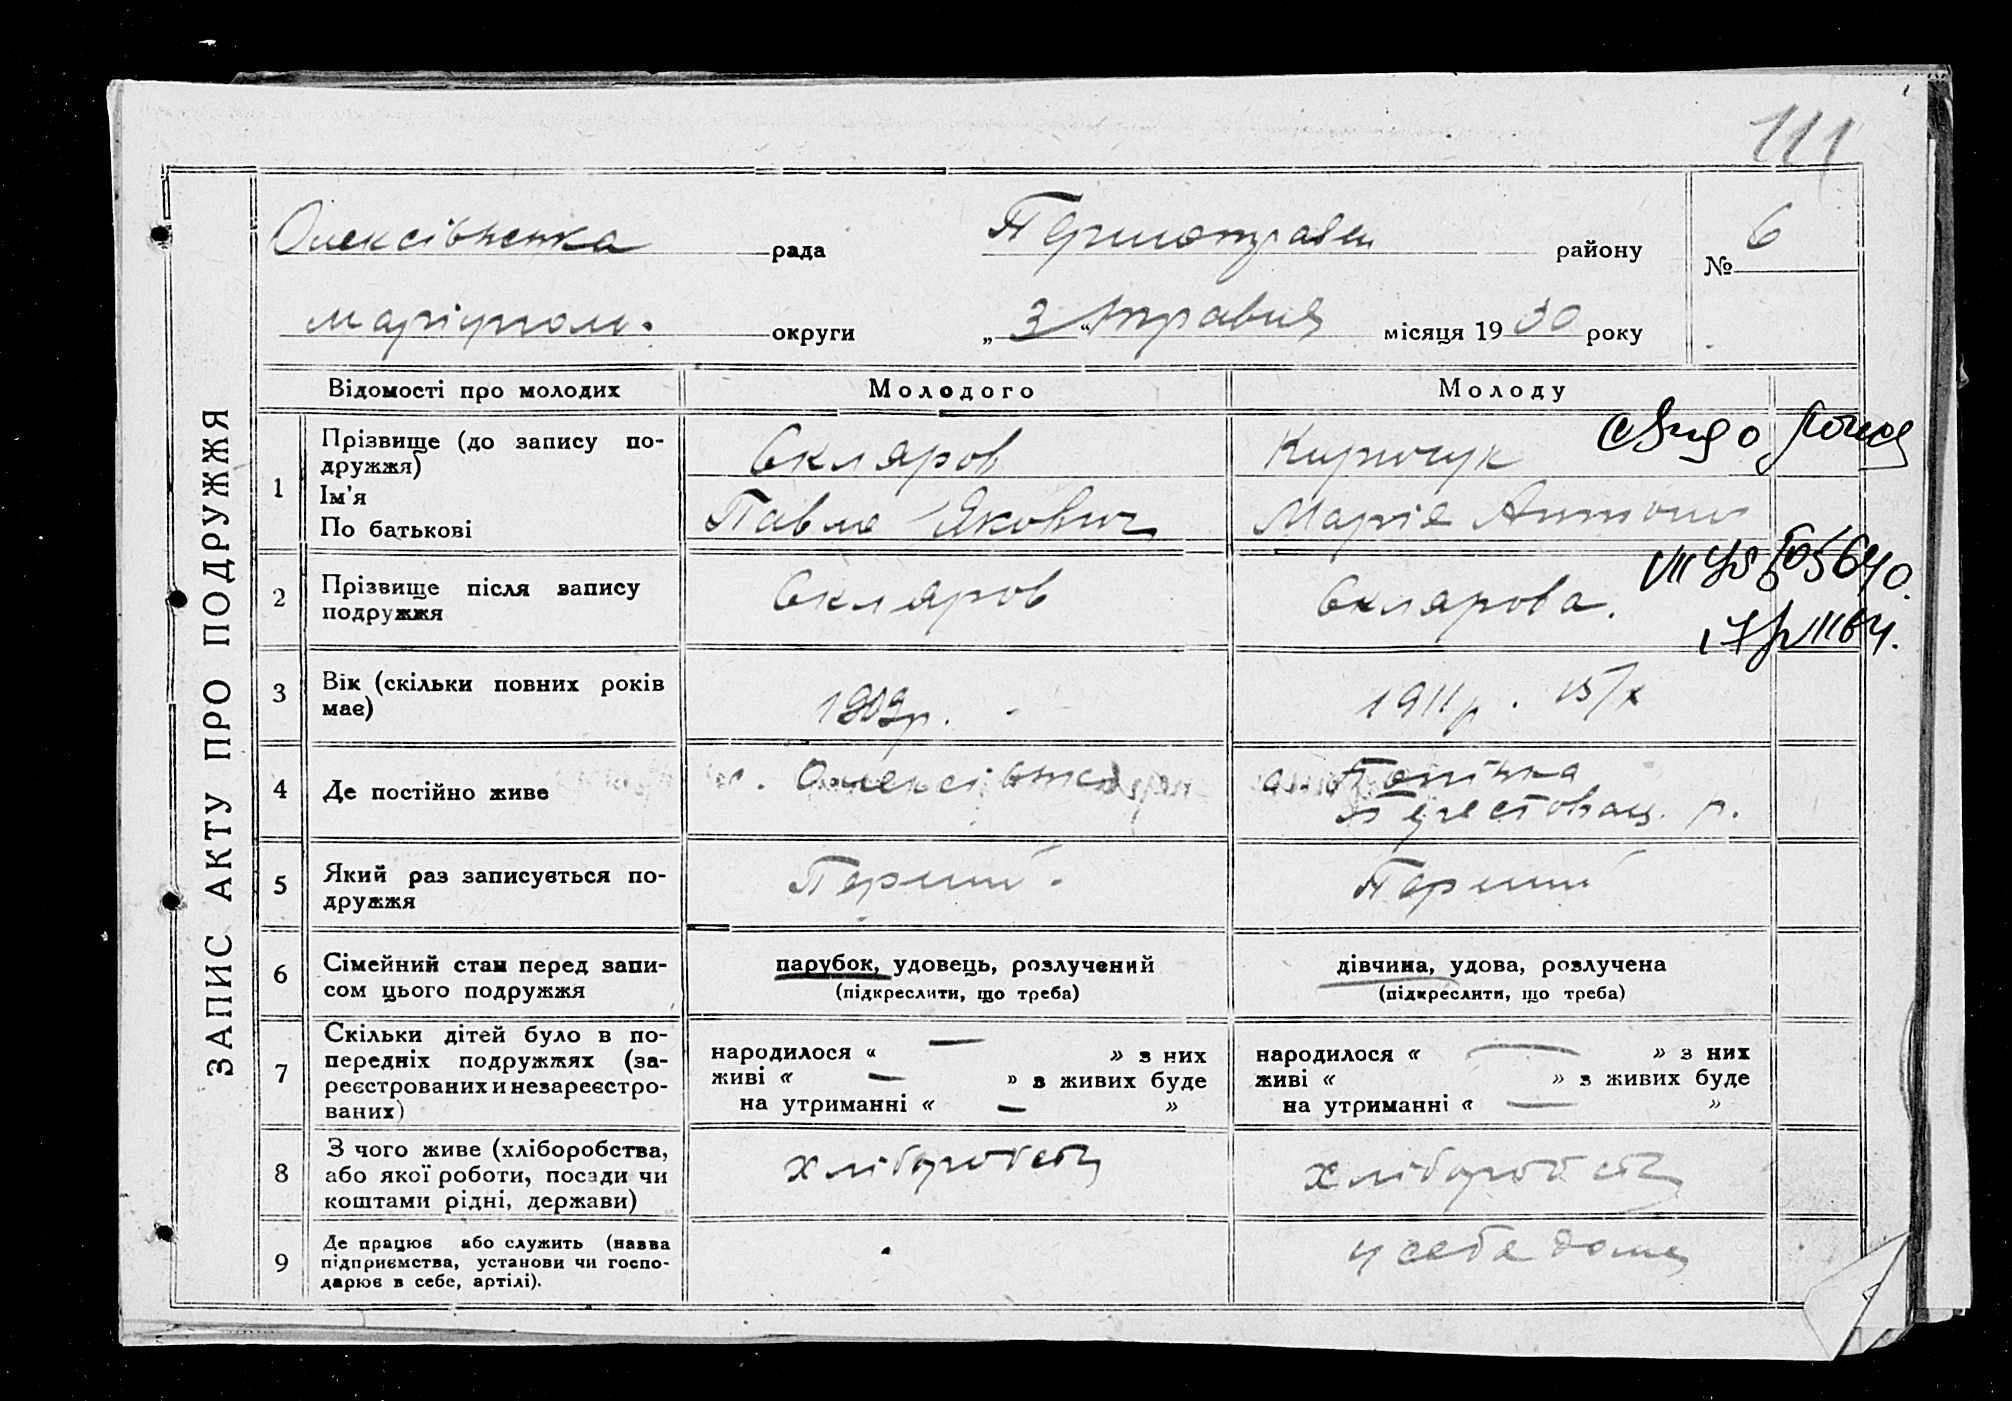 111
Олексівська рада
Першотравен району
№ 6
маріупол. округи
„3“ травня місяця 1930 року
ЗАПИС АКТУ ПРО ПОДРУЖЖЯ
Відомості про молодих
Молодого
Молоду
1
Прізвище (до запису по-
дружжя)
Ім'я
По батькові
Скляров
Павло Якович
Киричук
Марія Антонів
2
Прізвище після запису
подружжя
Скляров
Склярова.
3
Вік (скільки повних років
має)
1909р.
1911р. 15/X
4
Де постійно живе
Олексівка
р.
5
Який раз записується по-
дружжя
Перший.
Перший
6
Сімейний стан перед запи-
сом цього подружжя
парубок, удовець, розлучений
(підкреслити, що треба)
дівчина, удова, розлучена
(підкреслити, що треба)
7
Скільки дітей було в по-
передніх подружжях (за-
реєстрованих и незареєстро-
ваних)
народилося « — » з них
живі « — » з живих буде
на утриманні « — »
народилося « — » з них
живі « — » з живих буде
на утриманні « — »
8
З чого живе (хліборобства,
або якої роботи, посади чи
коштами рідні, держави)
хліборобств
хліборобств
9
Де працює або служить (назва
підприємства, установи чи госпо-
дарює в себе, артілі).
у себе дома